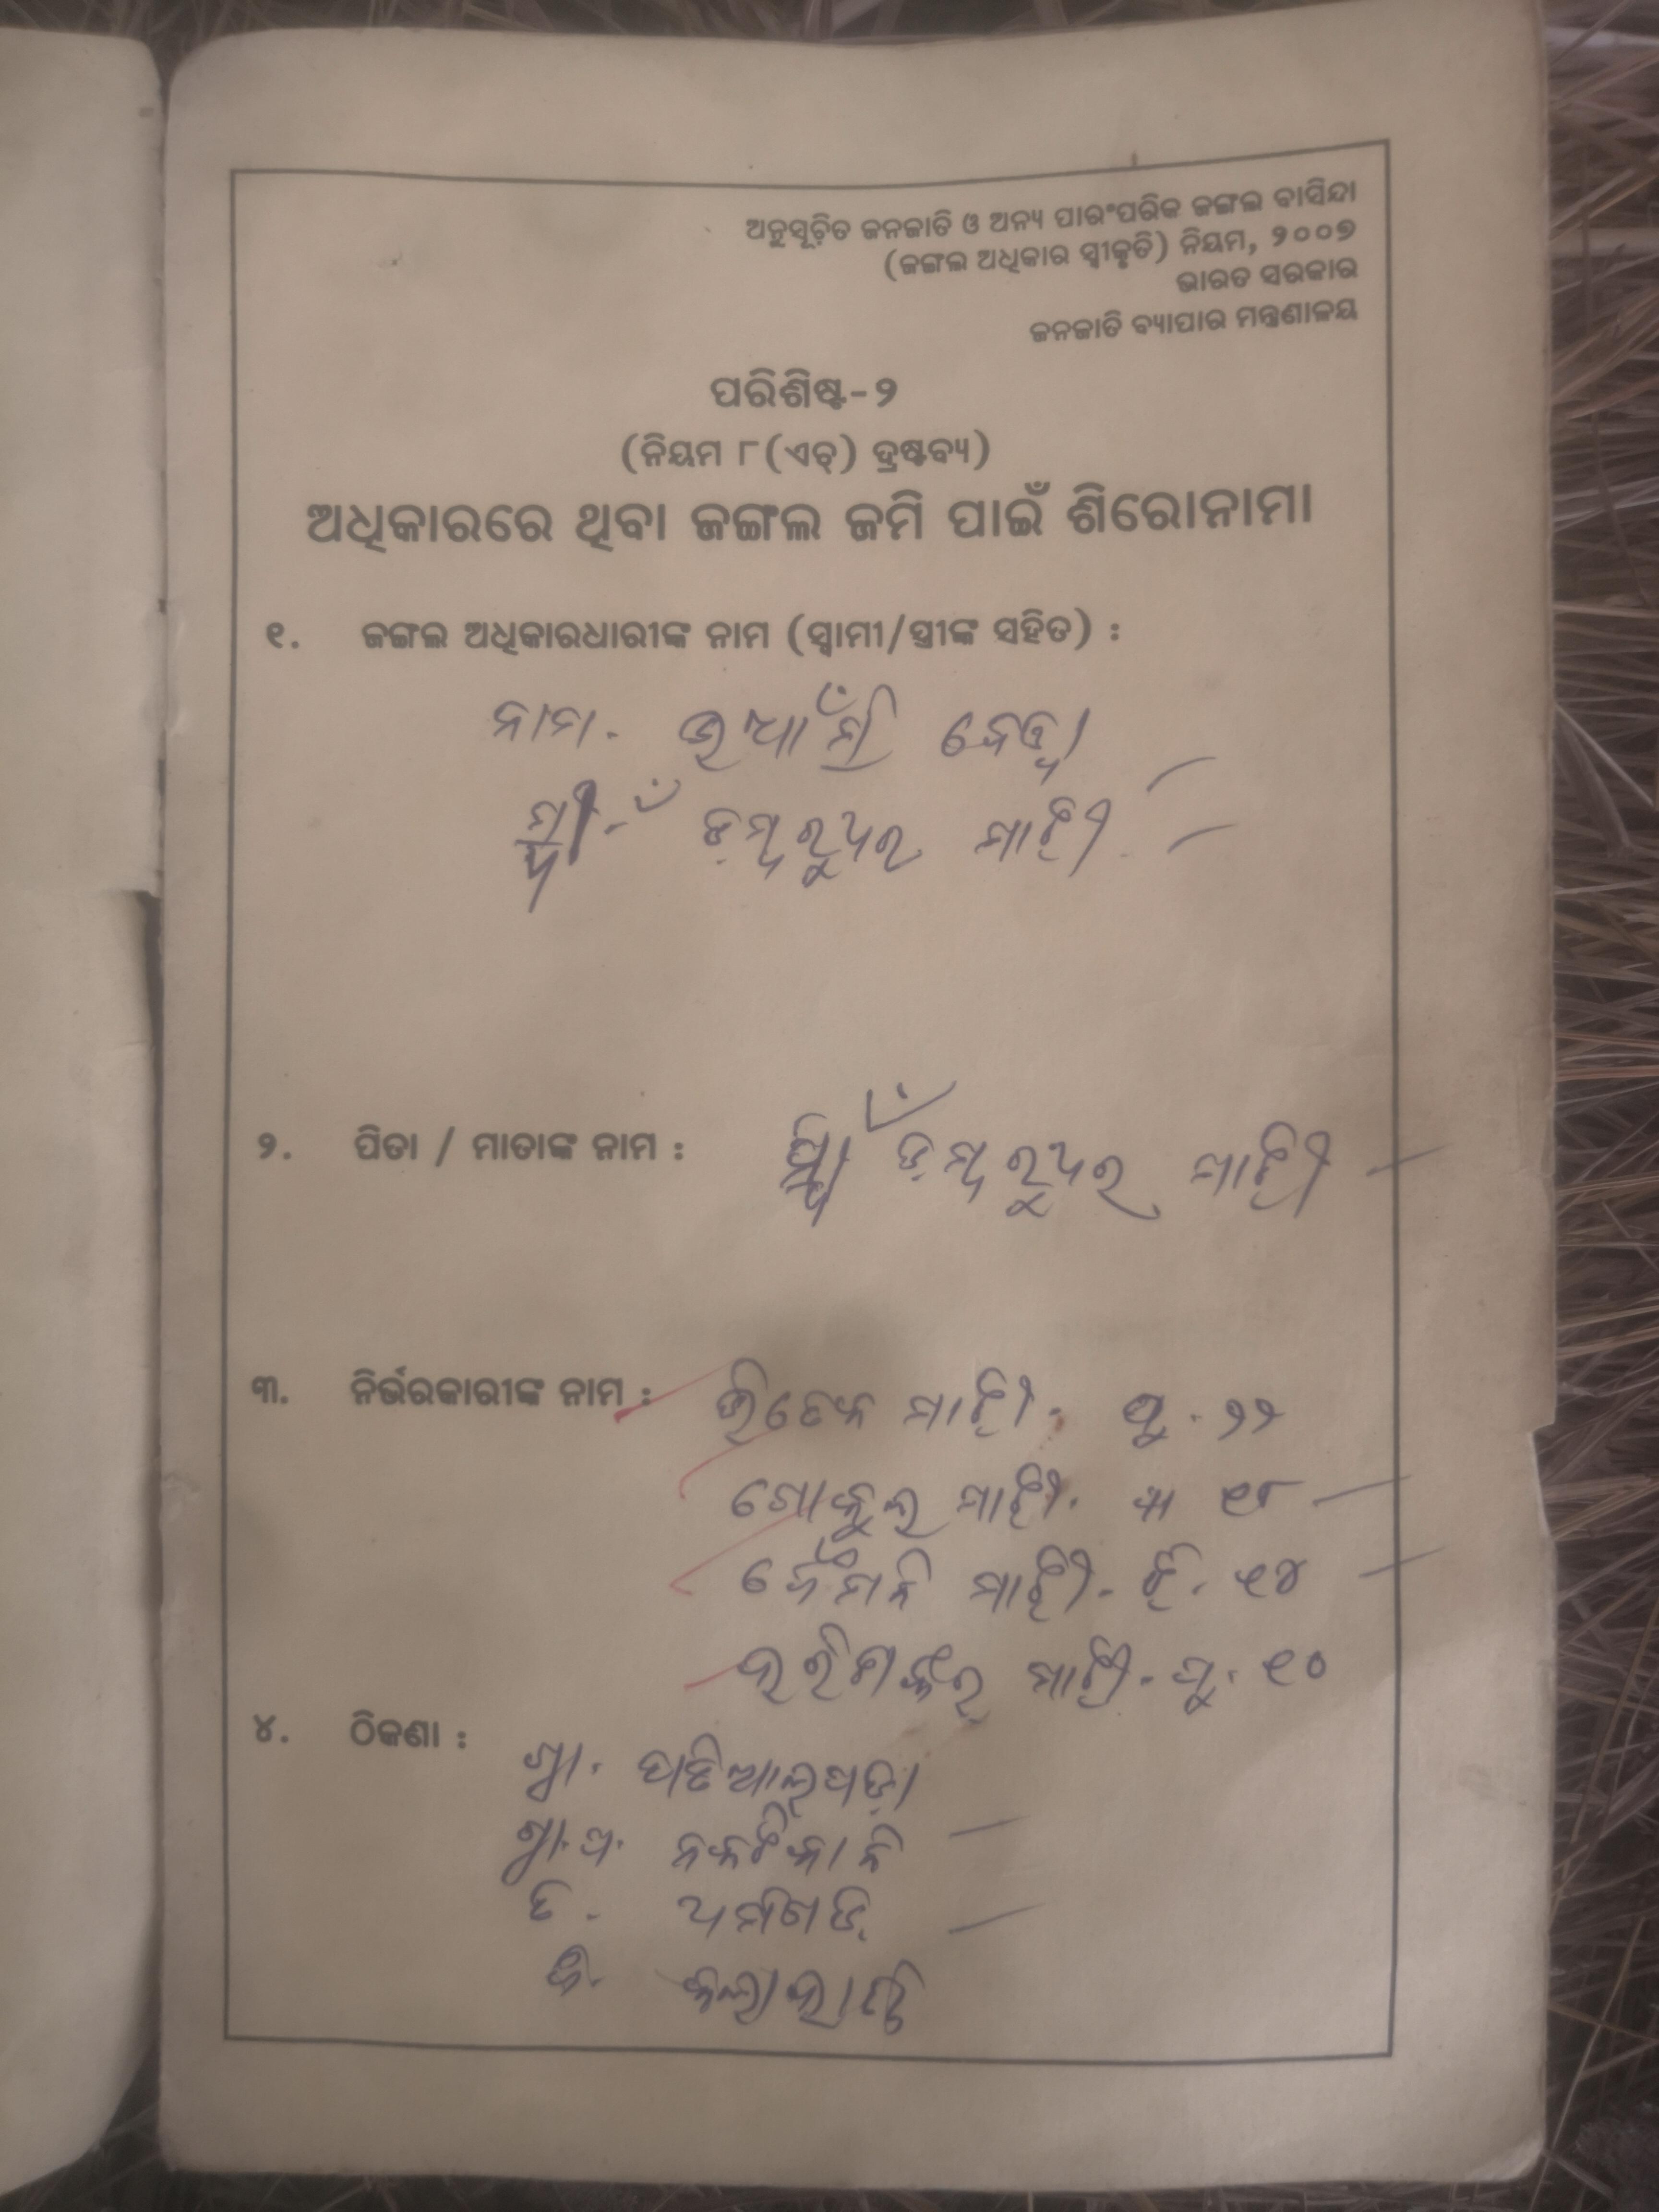 ଅନୁସୂଚିତ ଜନଜାତି ଓ ଅନ୍ୟ ପାରଂପରିକ ଜଙ୍ଗଲ ବାସିନ୍ଦା
(ଜଙ୍ଗଲ ଅଧିକାର ସ୍ୱୀକୃତି) ନିୟମ, ୨୦୦୭
ଭାରତ ସରକାର
ଜନଜାତି ବ୍ୟାପାର ମନ୍ତ୍ରଣାଳୟ
ପରିଶିଷ୍ଟ-୨
(ନିୟମ ୮(ଏଚ୍) ଦ୍ରଷ୍ଟବ୍ୟ)
ଅଧିକାରରେ ଥିବା ଜଙ୍ଗଲ ଜମି ପାଇଁ ଶିରୋନାମା
୧. ଜଙ୍ଗଲ ଅଧିକାରଧାରୀଙ୍କ ନାମ (ସ୍ୱାମୀ/ସ୍ତ୍ରୀଙ୍କ ସହିତ) :
ନାମ.
ଡ଼ମ୍ବରୁଧର ମାଝି
୨. ପିତା / ମାତାଙ୍କ ନାମ : ଡ଼ମ୍ବରୁଧର ମାଝି
୩. ନିର୍ଭରକାରୀଙ୍କ ନାମ : ମାଝି. ପୁ. ୨୨
ଗୋକୁଲ ମାଝି. ୧୮
ମାଝି. ଝି. ୧୪
ମାଝି. ପୁ. ୧୦
୪. ଠିକଣା : ଗ୍ରା.
ଗ୍ରା.ପ.
ଜି. କଳାହାଣ୍ଡି